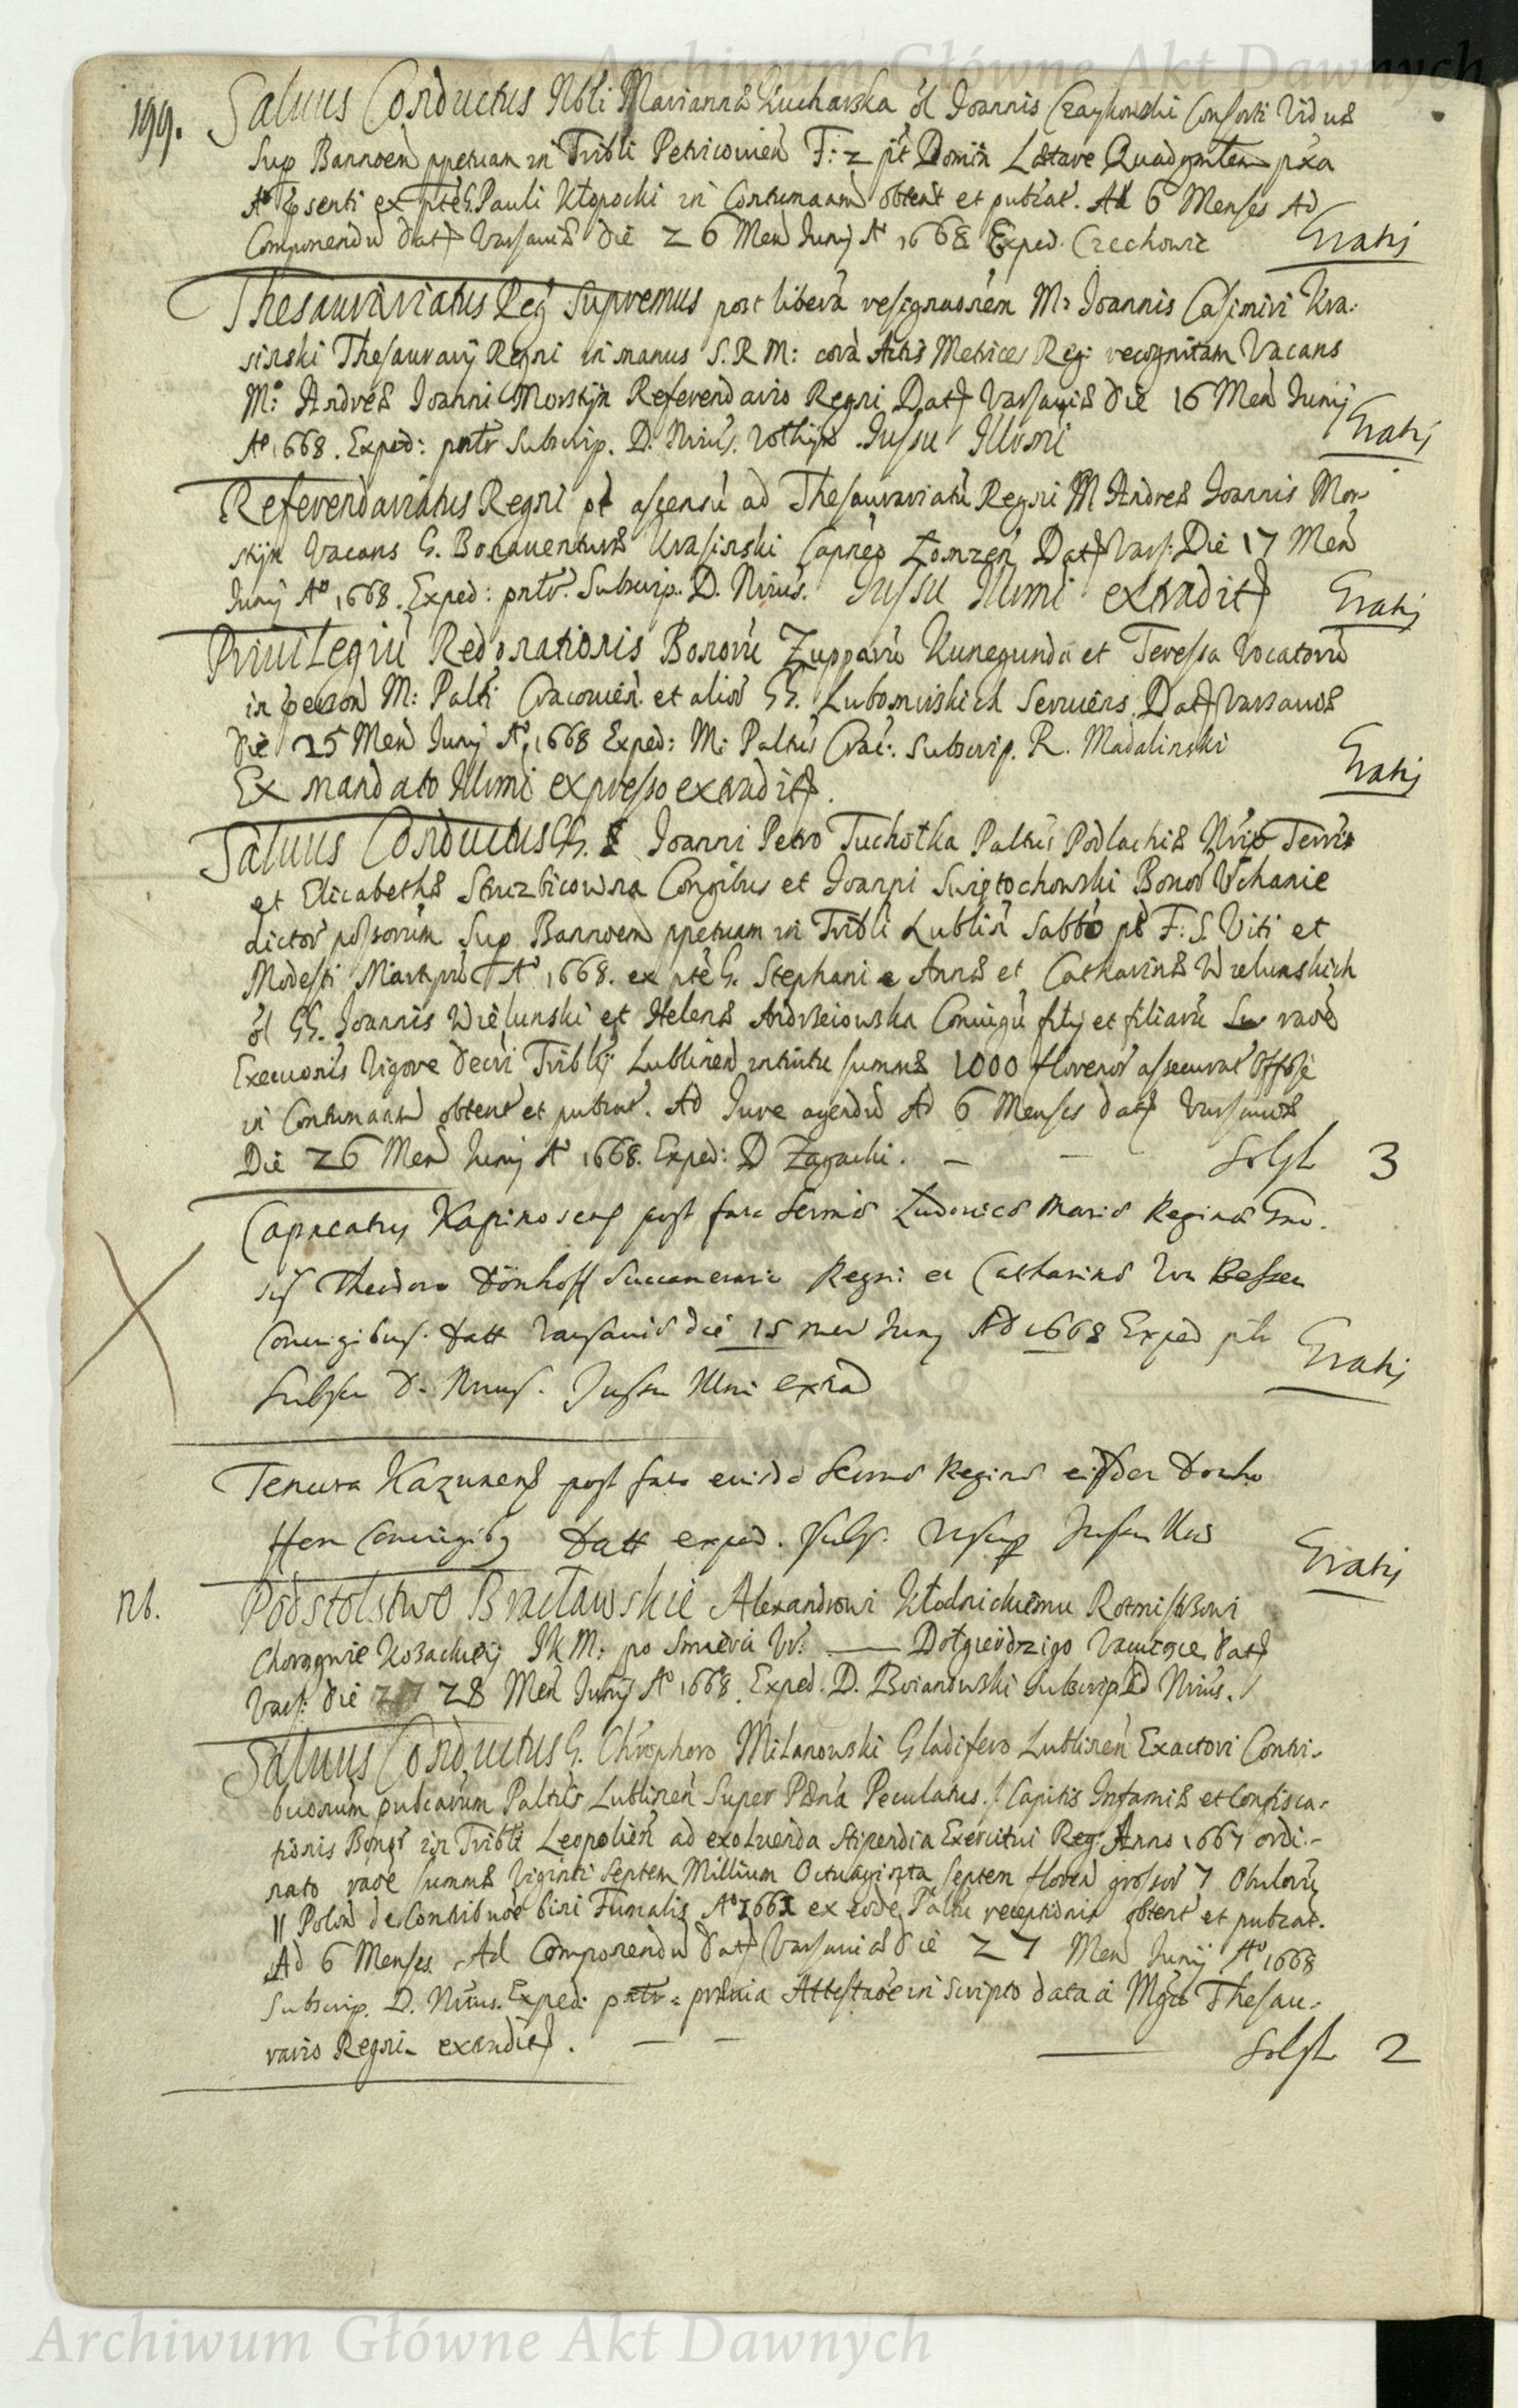 Archiwum Główne Akt Dawnych
199. Salvus Conductus Nbli Mariannæ Kucharska ol Joannis Czaykowski Consorti Viduæ
Sup Bannoem ppetuam in Tribli Petricovien F: 2 pt Domin Lætare Quadgmlem pxa
Aº psenti ex pte G. Pauli Kłopocki in Contumaam obtent et publcat. Ad 6 Menses Ad
Componendu Datt Varsaviæ Die 26 Men Junij Aº 1668 Exped. Czechowic Gratis
Thesaurariatus Reg Supremus post libera resignaonem M: Joannis Casimiri Kra-
sinski Thesaurarij Regni in manus S. R M: cora Actis Metrices Reg: recognitam Vacans
M: Andreæ Joanni Morstyn Referendario Regni Datt Varsaviæ Die 16 Men Junij
Aº 1668. Exped: pntr Subscrip. D. Nrius. Jussu Illmi Gratis
Referendariatus Regni pt ascensu ad Thesaurariatu Regni M Andreæ Joannis Mor-
styn Vacans G. Bonaventuræ Krasinski Capneo Łomzen Datt Vars: Die 17 Men
Junij Aº 1668. Exped: pntr. Subscrip. D. Nrius. Jussu Illmi extraditt Gratis
Privilegiu Redonationis Bonoru Zupparu Kunegunda et Teressa Vocatoru
in person M: Palti Cracovien. et alior GG. Lubomirskich Serviens Datt Varsaviæ
die 25 Men Junij Aº 1668 Exped: M: Paltus Crac: Subscrip. R. Madalinski
Ex mandato Illmi expresso extraditt. Gratis
Salvus Conductus GG. Joanni Petro Tuchołka Paltus Podlachiæ Terris
et Elizabethæ Congibus et Joanni Swiętochowski Bonor Uchanie
dictor possorum Sup Bannoem ppetuam in Tribli Lublin Sabbo pt F: S. Viti et
Modesti Martyru Aº 1668. ex pte G. Stephani Annæ et Catharinæ Wielunskich
ol GG. Joannis Wielunski et Helenæ Andrzeiowska Coniugu filij et filiaru raoe
Execuonis Vigore Decri Triblij Lublinen intuitu summæ 1000 florenor assecurat
in Contumaam obtent et publcat. Ad Jure agendu Ad 6 Menses datt Varsaviæ
Die 26 Men Junij Aº 1668. Exped: D Zagacki. — — Solst 3
Capneatus Kapinosens post fata Sermæ Ludovicæ Mariæ Reginæ Gno-
sis Theodoro Dönhoff Succamerario Regni et Catharinæ Von Bessen
Coniugibus. Datt Varsaviæ die 15 men Junij Aº 1668 Exped ptr
Subscr D. Nrius. Jussu Illmi extrad Gratis
Tenuta Kazunens post fata eiusde Sermæ Reginæ eisdem Donho
ffen Coniugibq Datt exped. Subs. Jussu Gratis
Nb. Podstolstwo Bracławskie Alexandrowi Kłodnickiemu Rotmistrzowi
Chorągwie Kozackiey JKM: po smierci W. —— Dołgwiordzigo Vacuiące datt
Vars: die 28 Men Junij Aº 1668. Exped. D. Boianowski Subscrip D Nrius.
Salvus Conductus G. Chrophoro Milanowski Gladifero Lublinen Exactori Contri-
buonum publcarum Paltus Lublinen Super Pœna Peculatus / Capitis Infamiæ et Confisca-
tionis Bonor in Tribli Leopolien ad exoluenda Stipendia Exercitui Reg: Anno 1667 ordi-
nato raoe summæ Viginti Septem Millium Octuaginta Septem floren grossor 7
11 Polon de Contribuoe bini Fumalis Aº 1661 ex eode Paltu obtent et publcat.
Ad 6 Menses Ad Componendu Datt Varsaviæ die 27 Men Junij Aº 1668
Subscrip. D. Nrius. Exped: pntr = prævia Attestaoe in Scripto data a Mgco Thesau-
rario Regni extraditt. — — —— Solst 2
Archiwum Główne Akt Dawnych